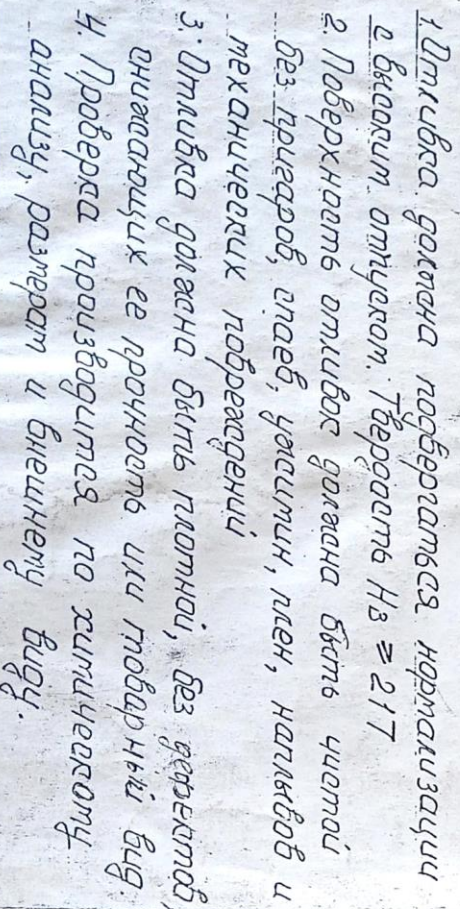 1. Отливка должна подвергаться нормализации
с высоким отпуском. Твердость Нв ≥ 217
2. Поверхность отливок должна быть чистой
без пригаров, спаев, ужимин, плен, наплывов и
механических повреждений
3. Отливка должна быть плотной, без дефектов,
снижающих ее прочность или товарный вид.
4. Проверка производится по химическому
анализу, размерам и внешнему виду.